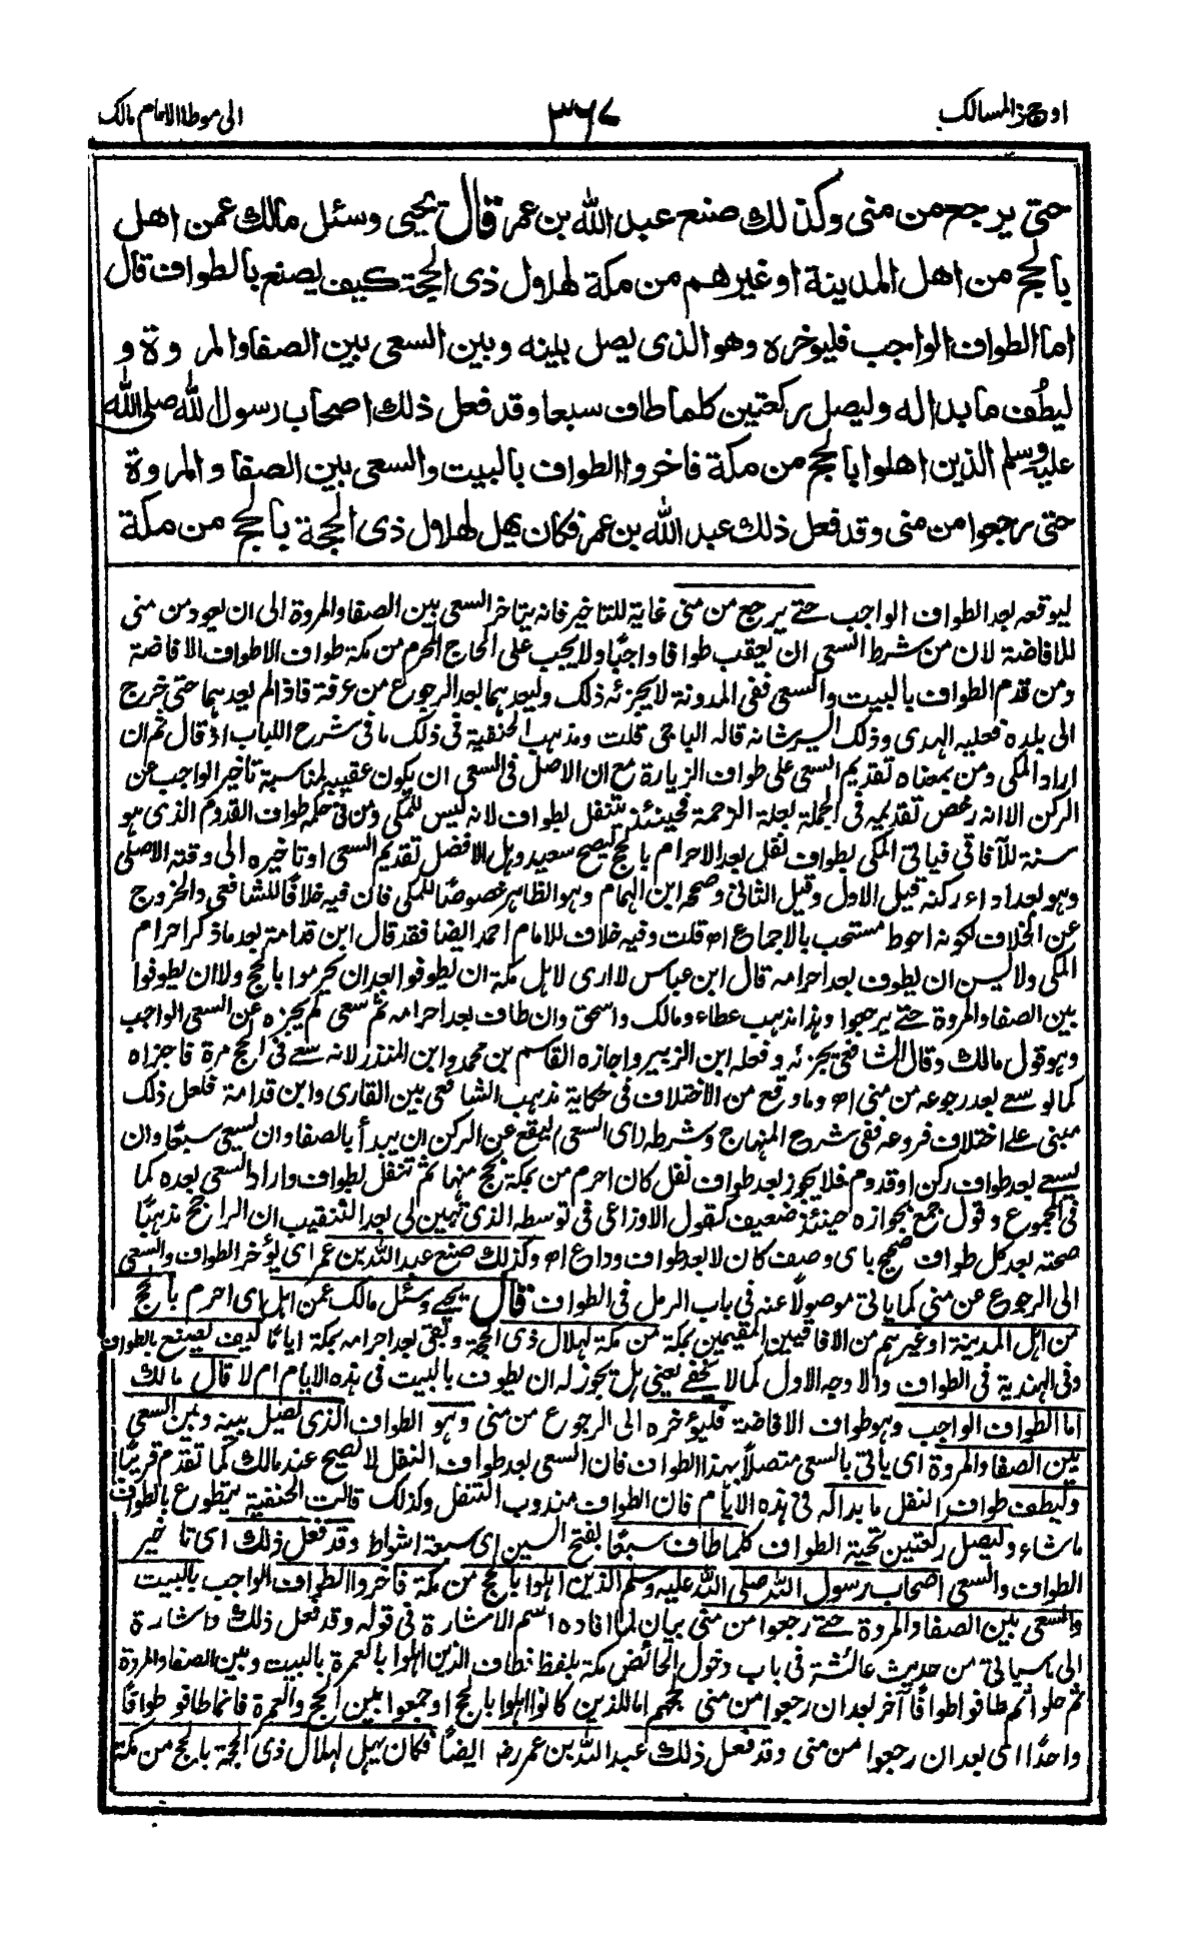 اوجز المسالك
٣٦٧
الى موطا الامام مالك
حتى يرجع من منى وكذلك صنع عبد الله بن عمر قال يحيى وسئل مالك عمن اهل
بالحج من اهل المدينة او غيرهم من مكة لهلال ذى الحجة كيف يصنع بالطواف قال
اما الطواف الواجب فليوخره وهو الذى يصل بينه وبين السعى بين الصفا والمروة و
ليطُف ما بدا له وليصل ركعتين كلما طاف سبعا وقد فعل ذلك اصحاب رسول لله صلى الله
عليه وسلم الذين اهلوا بالحج من مكة فاخروا الطواف بالبيت والسعى بين الصفا والمروة
حتى رجعوا من منى وقد فعل ذلك عبد الله بن عمر فكان يهل لهلال ذى الحجة بالحج من مكة
ليوقعه بعد الطواف الواجب حتے يرجع من منى غاية للتاخير فانه يتاخر السعى بين الصفا والمروة الى ان يعود من منى
للافاضة لان من شرط السعى ان يعقب طوافا واجبًا ولا يجب على الحاج المحرم من مكة طواف الا طواف الافاضة
ومن قدم الطواف بالبيت والسعى ففى المدونة لا يجزئه ذلك وليعدهما بعد الرجوع من عرفة فاذا لم يعدهما حتى خرج
الى بلده فعليه الهدى وذلك ايسر شانه قاله الباجى قلت ومذهب الحنفية فى ذلك ما فى شرح اللباب اذ قال ثم ان
اراد المكى ومن بمعناه تقديم السعى على طواف الزيارة مع ان الاصل فى السعى ان يكون عقيبه لمناسبة تاخير الواجب عن
الركن الا انه رخص تقديمه فى الجملة بعلة الزحمة فحينئذ يتنفل بطواف لانه ليس للمكى ومن فى حكمه طواف القدوم الذى هو
سنة للآفاقى فياتى المكى بطواف نفل بعد الاحرام بالحج ليصح سعيه وهل الافضل تقديم السعى او تاخيره الى وقته الاصلى
وهو بعد اداء ركنه قيل الاول وقيل الثانى وصححه ابن الهمام وهو الظاهر خصوصًا للمكى فان فيه خلافًا للشافعى والخروج
عن الخلاف لكونه احوط مستحب بالاجماع اھ قلت وفيه خلاف للامام احمد ايضا فقد قال ابن قدامة بعد ما ذكر احرام
المكى ولا يسن ان يطوف بعد احرامه قال ابن عباس لا ارى لاهل مكة ان يطوفوا بعد ان يحرموا بالحج ولا ان يطوفوا
بين الصفا والمروة حتے يرجعوا وهذا مذهب عطاء ومالك واسحق وان طاف بعد احرامه ثم سعى لم يجزه عن السعى الواجب
وهو قول مالك وقال الشافعى يجزئه وفعله ابن الزبير واجازه القاسم بن محمد وابن المنذر لانه سعے فى الحج مرة فاجزاه
كما لو سعے بعد رجوعه من منى اھ وما وقع من الاختلاف فى حكاية مذهب الشافعى بين القارى وابن قدامة فلعل ذلك
مبنى على اختلاف فروعه ففى شرح المنهاج وشرطه (اى السعى) ليقع عن الركن ان يبدأ بالصفا وان يسعى سبعًا وان
يسعے بعد طواف ركن او قدوم فلا يجوز بعد طواف نفل كان احرم من بمكة بحج منها ثم تنفل بطواف واراد السعى بعده كما
فى المجموع وقول جمع بجوازه حينئذ ضعيف كقول الاوزاعى فى توسطه الذى تبين لى بعد التنقيب ان الراجح مذهبًا
صحته بعد كل طواف صحيح باى وصف كان لا بعد طواف وداع اھ وكذلك صنع عبد الله بن عمر اى يؤخر الطواف والسعى
الى الرجوع عن منى كما ياتى موصولًا عنه فى باب الرمل فى الطواف قال يحيے وسئل مالك عمن اهل اى احرم بالحج
من اهل المدينة او غيرهم من الافاقيين المقيمين بمكة من مكة لهلال ذى الحجة وبقى بعد احرامه بمكة اياما كيف يصنع بالطواف
وفى الهندية فى الطواف والاوجه الاول كما لا يخفے يعنى هل يجوز له ان يطوف بالبيت فى هذه الايام ام لا قال مالك
اما الطواف الواجب وهو طواف الافاضة فليؤخره الى الرجوع من منى وهو الطواف الذى يصل بينه وبين السعى
بين الصفا والمروة اى ياتى بالسعى متصلًا بهذا الطواف فان السعى بعد طواف النفل لا يصح عند مالك كما تقدم قريبًا
وليطف طواف النفل ما بدا له فى هذه الايام فان الطواف مندوب التنفل وكذلك قالت الحنفية يتطوع بالطواف
ما شاء وليصل ركعتين تحية الطواف كلما طاف سبعًا بفتح السين اى سبعة اشواط وقد فعل ذلك اى تاخير
الطواف والسعى اصحاب رسول الله صلى الله عليه وسلم الذين اهلوا بالحج من مكة فاخروا الطواف الواجب بالبيت
والسعى بين الصفا والمروة حتے رجعوا من منى بيان لما افاده اسم الاشارة فى قوله وقد فعل ذلك واشارة
الى ما سياتى من حديث عائشة فى باب دخول الحائض مكة بلفظ فطاف الذين اهلوا بالعمرة بالبيت وبين الصفا والمروة
ثم حلوا ثم طافوا طوافًا آخر بعد ان رجعوا من منى لحجهم اما الذين كانوا اهلوا بالحج او جمعوا بين الحج والعمرة فانما طافوا طوافًا
واحدًا اى بعد ان رجعوا من منى وقد فعل ذلك عبد الله بن عمر رضـ ايضًا فكان يهل لهلال ذى الحجة بالحج من مكة